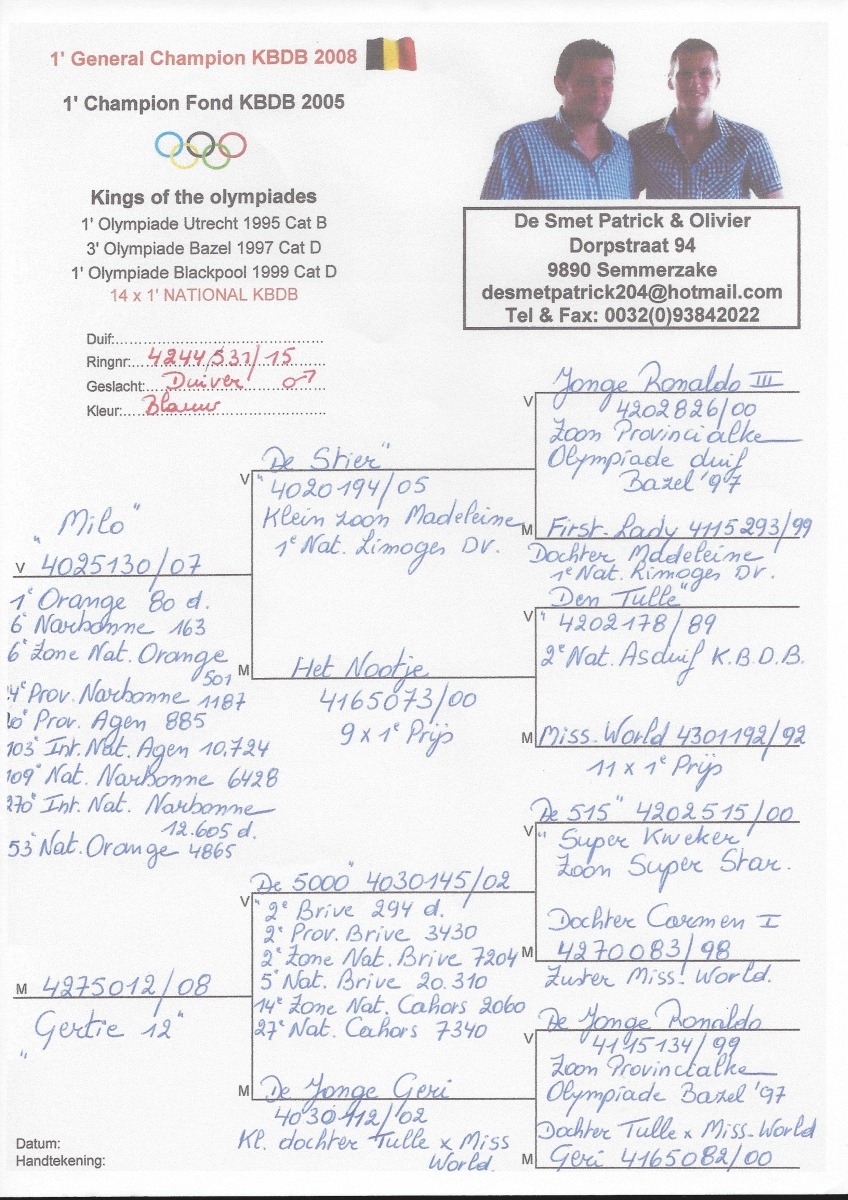 1' General Champion KBDB 2008
1' Champion Fond KBDB 2005
Kings of the olympiades
1' Olympiade Utrecht 1995 Cat B
3' Olympiade Bazel 1997 Cat D
1' Olympiade Blackpool 1999 Cat D
14 x 1' NATIONAL KBDB
De Smet Patrick & Olivier
Dorpstraat 94
9890 Semmerzake
desmetpatrick204@hotmail.com
Tel & Fax: 0032(0)93842022
Duif:
Ringnr: 4244531/15
Geslacht: Duiver ♂
Kleur: Blauw
"Milo"
V 4025130/07
1e Orange 80 d.
6e Narbonne 163
6e Zone Nat. Orange
501
4e Prov. Narbonne 1187
Prov. Agen 885
103e Int. Nat. Agen 10.724
109e Nat. Narbonne 6428
270e Int. Nat. Narbonne
12.605 d.
53e Nat. Orange 4865
M 4275012/08
"Gertie 12"
V "De Stier"
4020194/05
Klein zoon Madeleine
1e Nat. Limoges DV.
M Het Nootje
4165073/00
9 x 1e Prijs
V De 5000" 4030145/02
"2e Brive 294 d.
2e Prov. Brive 3430
2e Zone Nat. Brive 7204
5e Nat. Brive 20.310
14e Zone Nat. Cahors 2060
27e Nat. Cahors 7340
M De Jonge Geri
4030112/02
Kl. dochter Tulle x Miss
World.
V Jonge Ronaldo III
4202826/00
Zoon Provincialke
Olympiade duif
Bazel '97
M First-Lady 4115293/99
Dochter Madeleine
1e Nat. Limoges DV.
V Den Tulle"
"4202178/89
2e Nat. Asduif K.B.D.B.
M Miss-World 4301192/92
11 x 1e Prijs
V De 515" 4202515/00
"Super Kweker
Zoon Super Star.
Dochter Carmen I
M 4270083/98
Zuster Miss-World.
V De Jonge Ronaldo
4115134/99
Zoon Provincialke
Olympiade Bazel '97
Dochter Tulle x Miss-World
M Geri 4165082/00
Datum:
Handtekening: